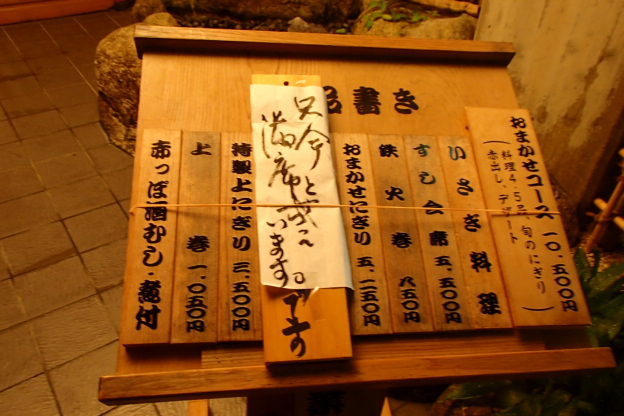 品書き
おまかせコース 一〇.五〇〇円
（料理4.5品 旬のにぎり
赤出し、デザート）
いさき料理
すし会席
鉄火巻 八五〇円
おまかせにぎり 五.二五〇円
只今
満席と成って
います。
です
特製上にぎり
上巻 一.〇五〇円
赤っぽ酒むし・煮付